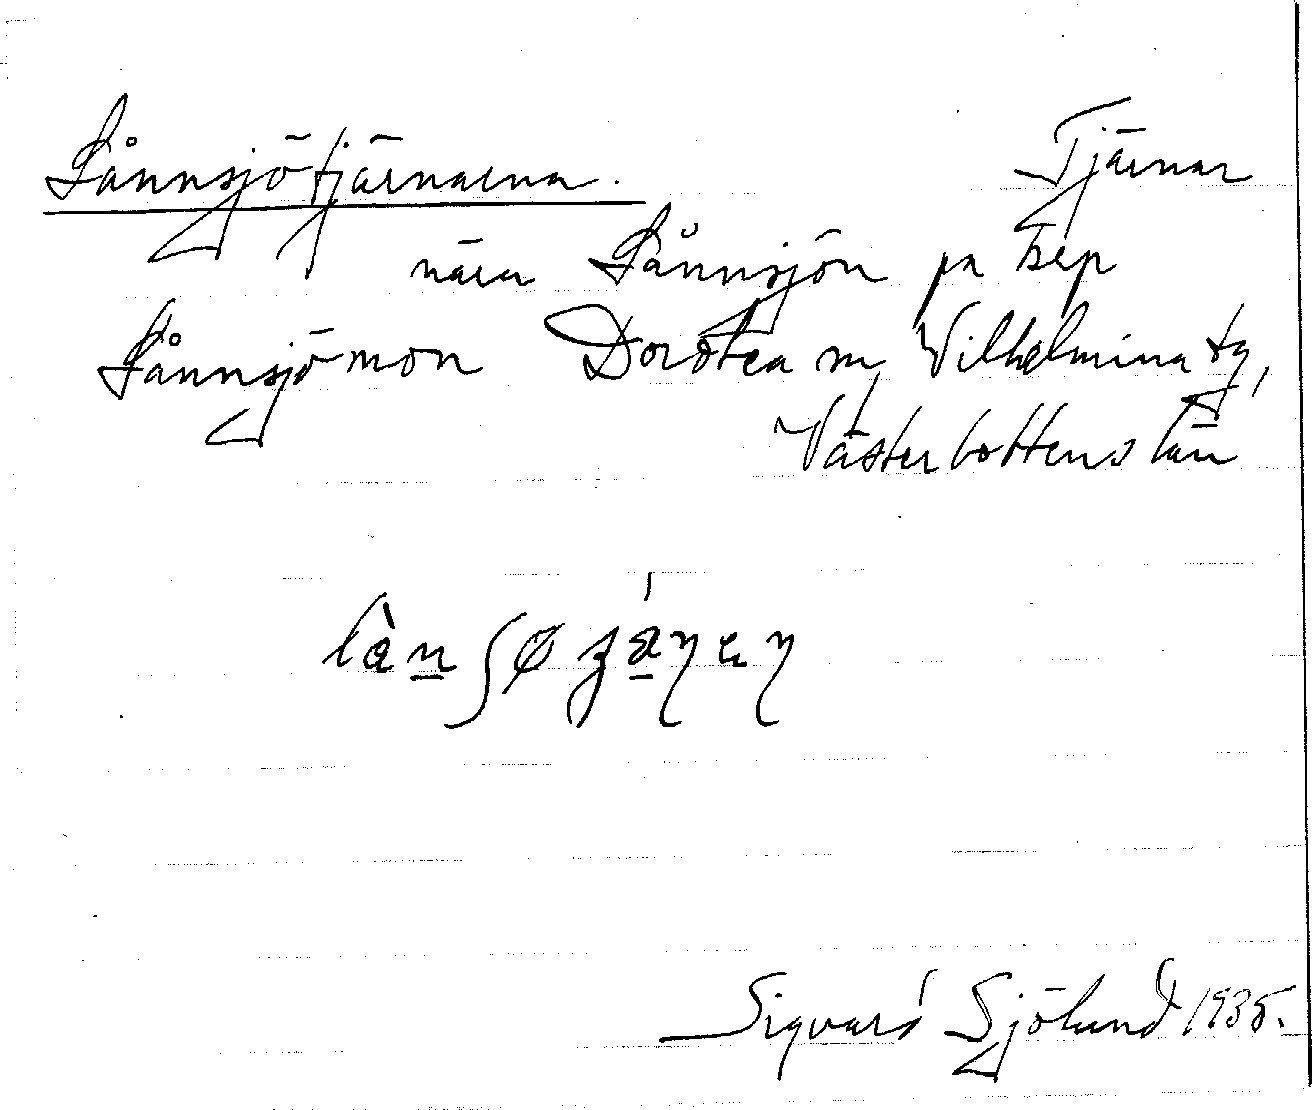 Lånnsjötjärnarna. Tjärnar
nära Lånnsjön på krp
Lånnsjömon Dorotea m, Vilhelmina tg,
Västerbottens län
Sigvard Sjölund 1935.